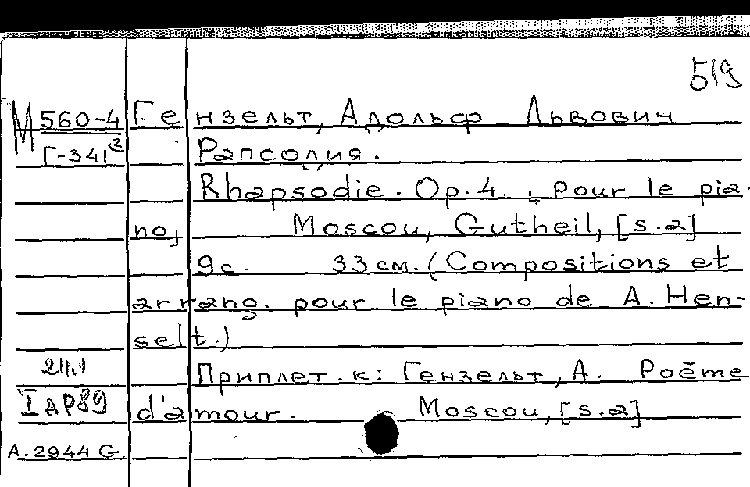 519
М 560-4 Гензельт, Адольф Львович
Г-341² Рапсодия.
Rhapsodie. Op. 4. , pour le pia-
no, Moscou, Gutheil, [s.a]
9с. 33 см. (Compositions et
arrang. pour le piano de A. Hen-
selt.)
Приплет. к: Гензельт, А. Poëme
d'amour. Moscou, [s.a]
A.2944 G